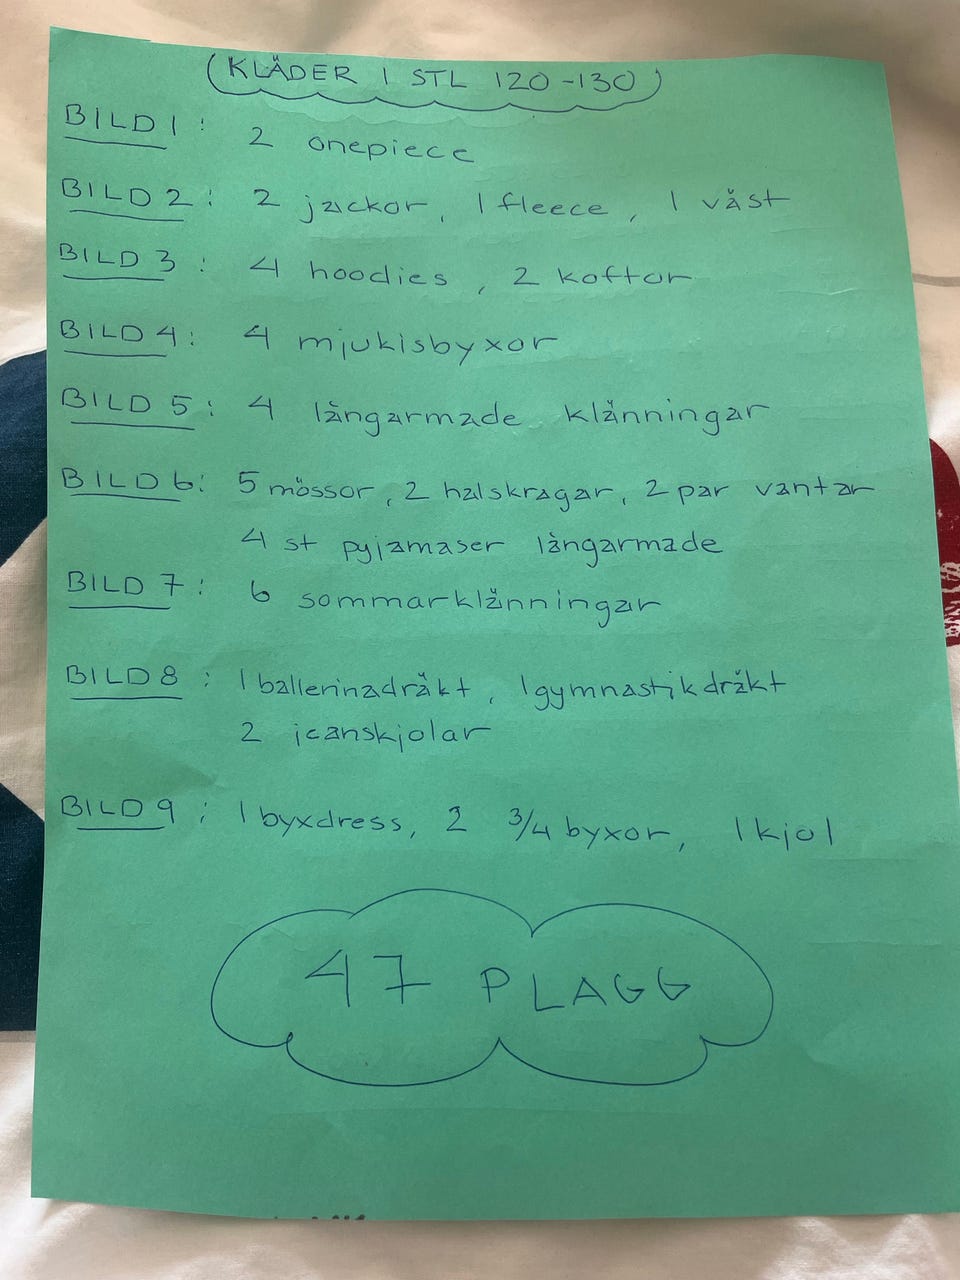 (KLÄDER I STL 120-130)
BILD 1: 2 onepiece
BILD 2: 2 jackor, 1 fleece, 1 väst
BILD 3: 4 hoodies, 2 koftor
BILD 4: 4 mjukisbyxor
BILD 5: 4 långarmade klänningar
BILD 6: 5 mössor, 2 halskragar, 2 par vantar
4 st pyjamaser långarmade
BILD 7: 6 sommarklänningar
BILD 8: 1 ballerinadräkt, 1 gymnastikdräkt
2 jeanskjolar
BILD 9: 1 byxdress, 2 3/4 byxor, 1 kjol
47 PLAGG